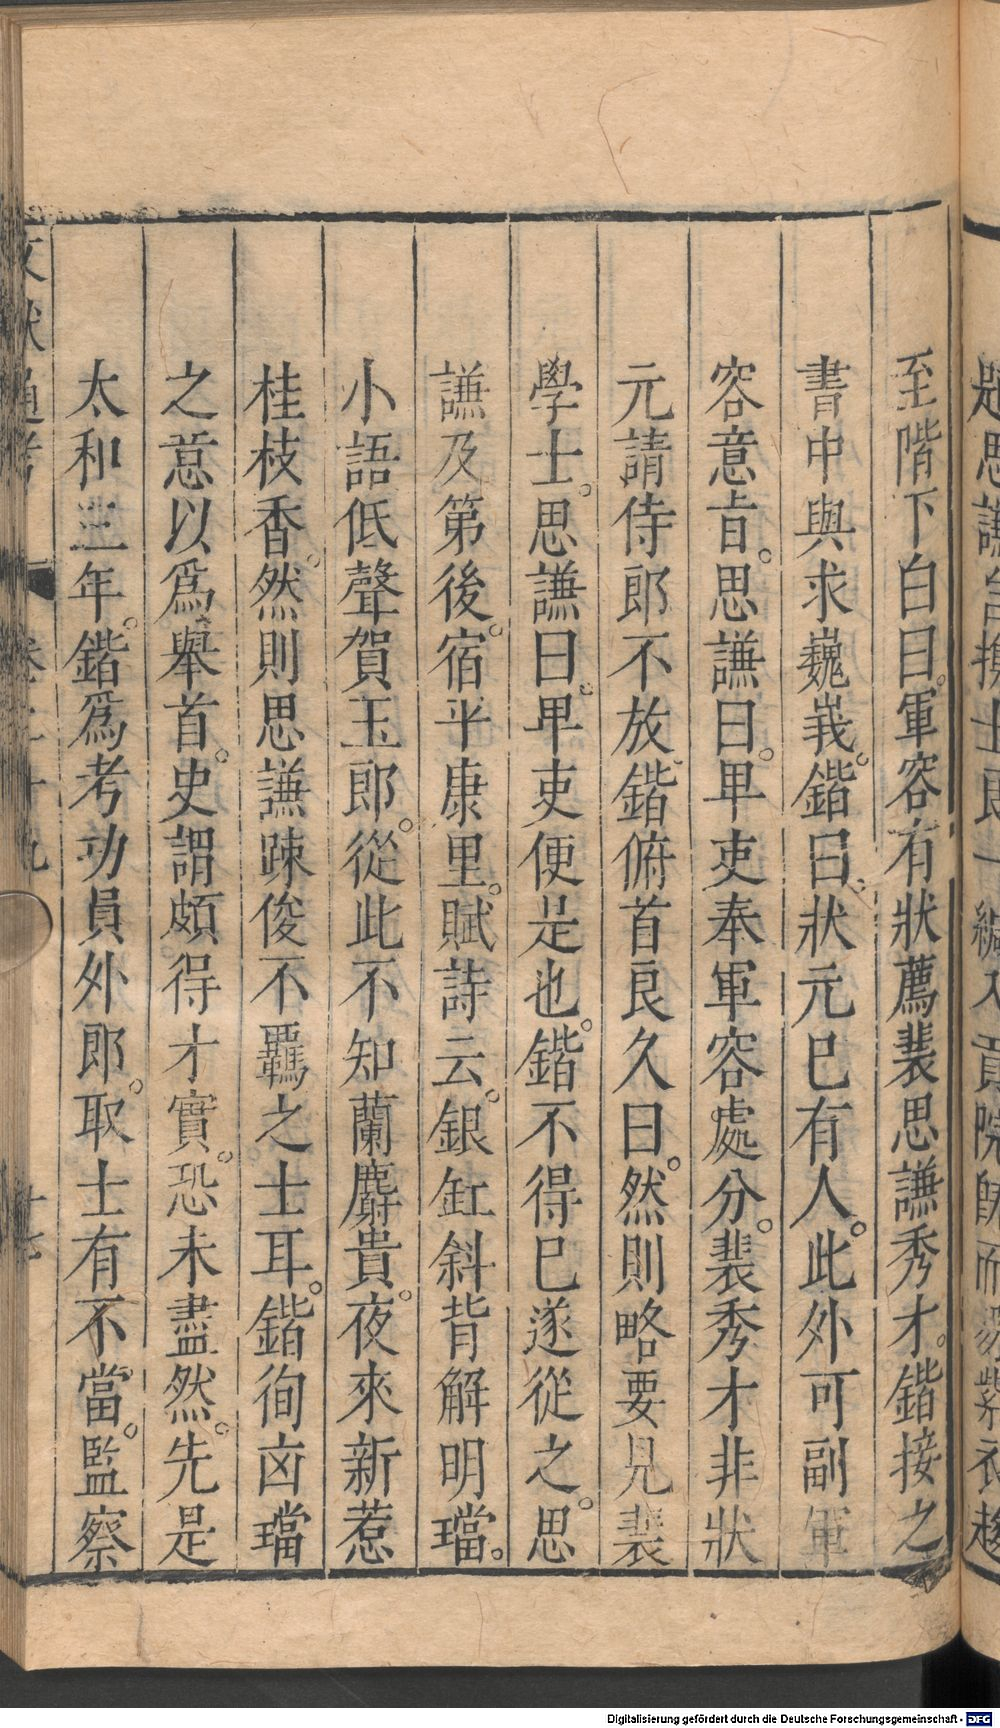 題思謙自携士良一緘入貢院既而易紫衣趨
至階下白曰。軍容有狀薦裴思謙秀才。鍇接之
書中與求巍峩。鍇曰。狀元已有人。此外可副軍
容意旨。思謙曰。卑吏奉軍容處分。裴秀才非狀
元請侍郎不放。鍇俯首良久曰。然則略要見裴
學士。思謙曰。卑吏便是也。鍇不得已遂從之。思
謙及第後。宿平康里。賦詩云。銀缸斜背解明璫。
小語低聲賀玉郎。從此不知蘭麝貴。夜來新惹
桂枝香。然則思謙踈俊不羈之士耳。鍇徇凶璫
之意以爲舉首。史謂頗得才實。恐未盡然。先是
太和三年。鍇爲考功員外郎。取士有不當。監察
文獻通考 卷二十九 十七
Digitalisierung gefördert durch die Deutsche Forschungsgemeinschaft - DFG